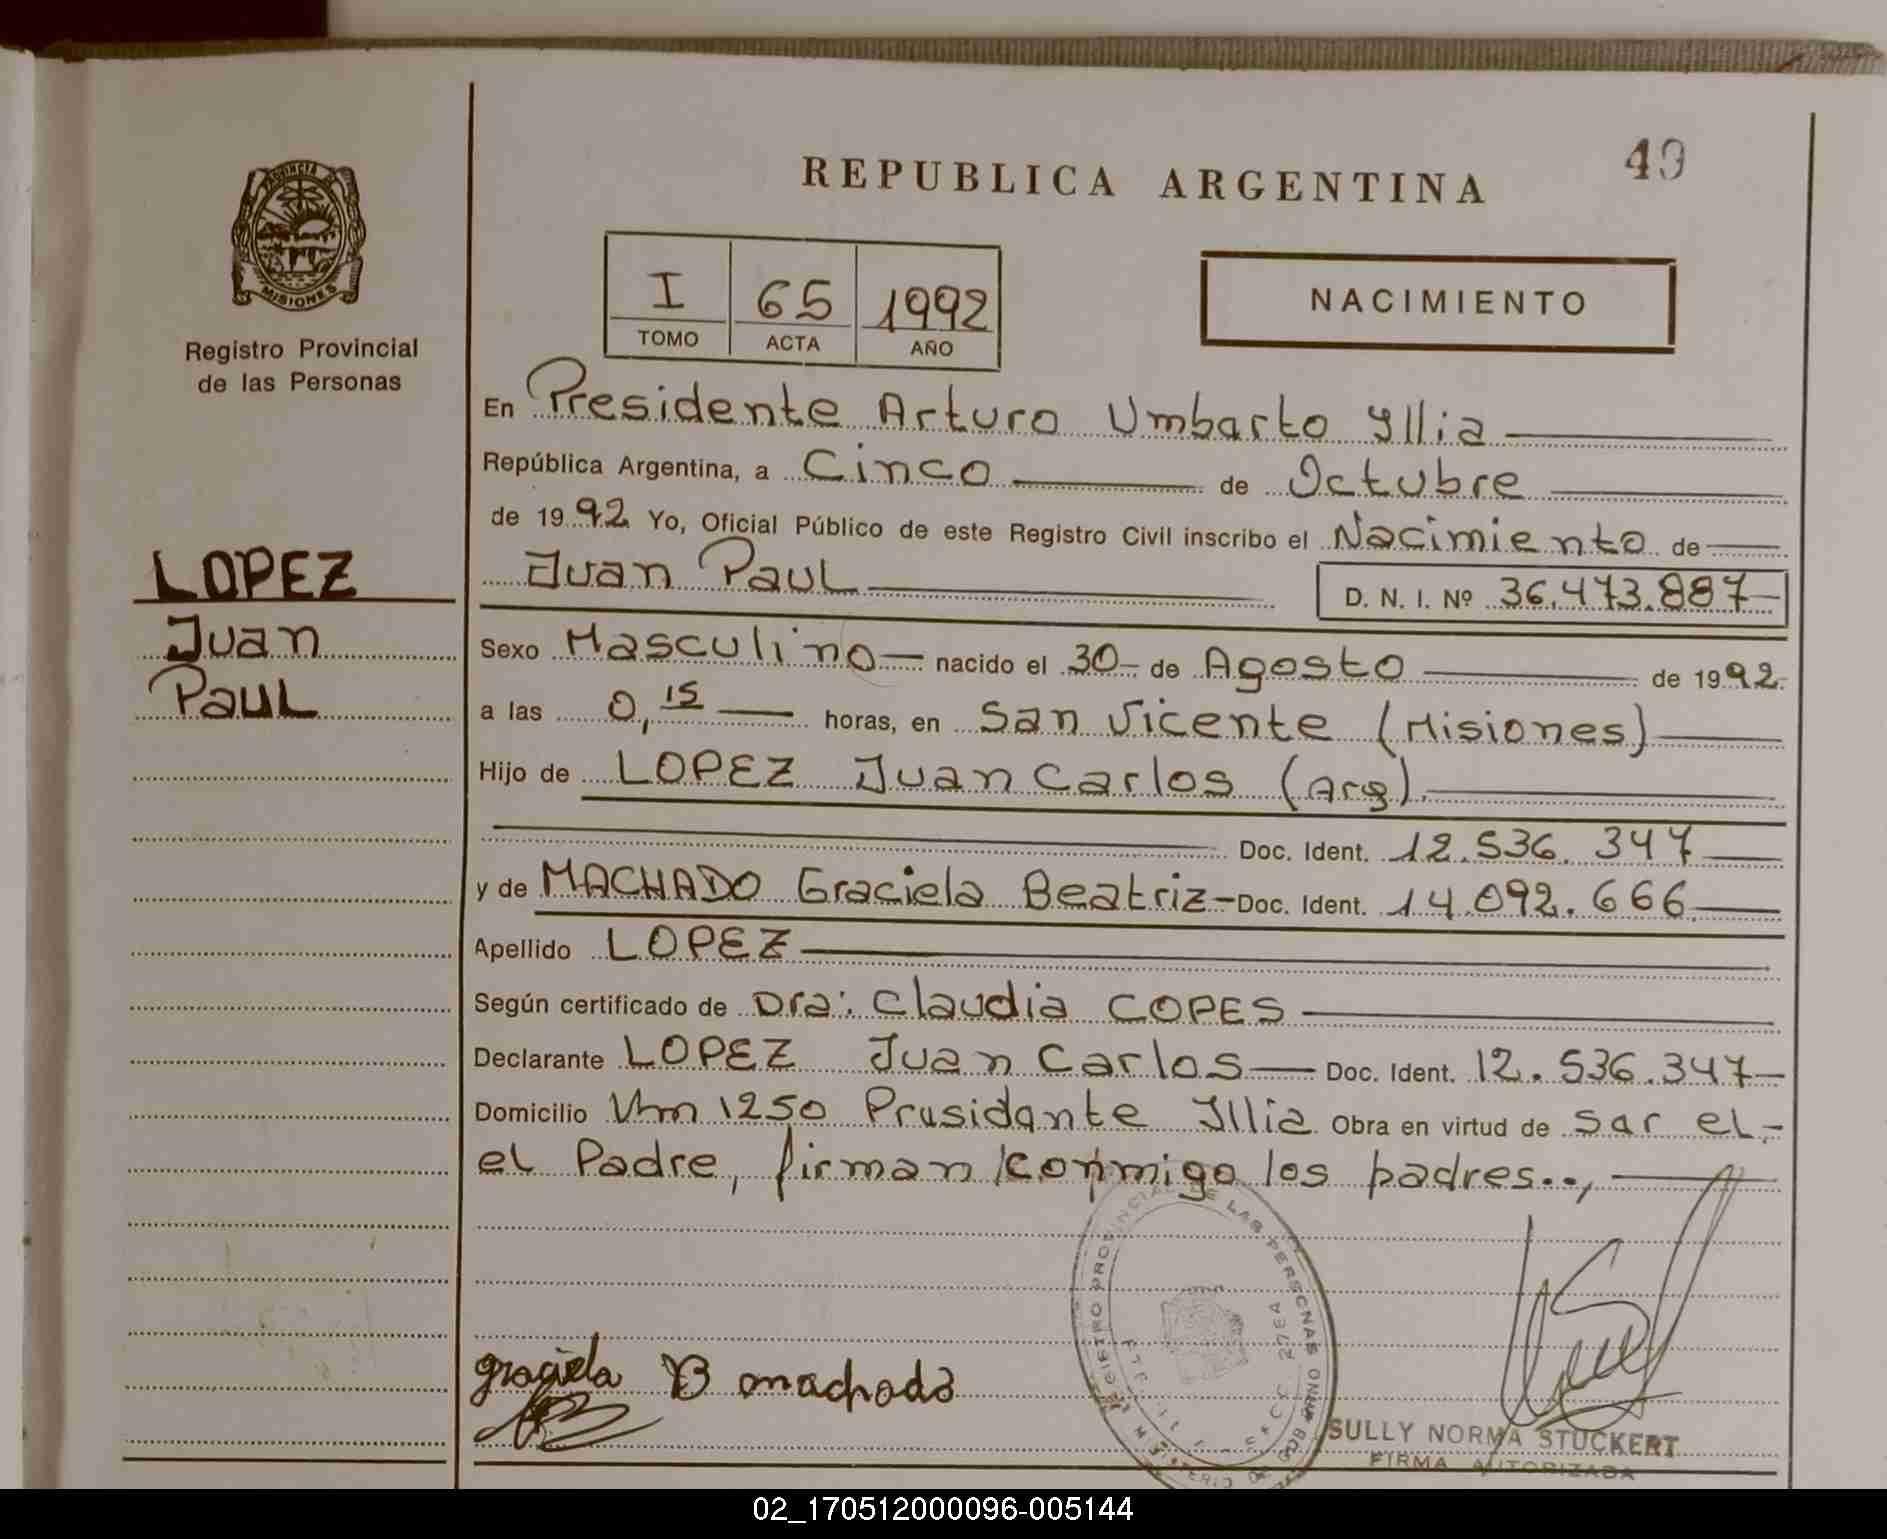 49
REPUBLICA ARGENTINA
PROVINCIA DE
MISIONES
Registro Provincial
de las Personas
I 65 1992
TOMO ACTA AÑO
NACIMIENTO
En Presidente Arturo Umbarto Yllia
República Argentina, a Cinco de Octubre
de 1992 Yo, Oficial Público de este Registro Civil inscribo el Nacimiento de
Juan Paul D. N. I. Nº 36.473.887
LOPEZ
Juan
Paul
Sexo Masculino nacido el 30 de Agosto de 1992
a las 0,15 horas, en San Vicente (Misiones)
Hijo de LOPEZ Juan Carlos (Arg).
Doc. Ident. 12.536.347
y de MACHADO Graciela Beatriz- Doc. Ident. 14.092.666
Apellido LOPEZ
Según certificado de Dra: Claudia COPES
Declarante LOPEZ Juan Carlos Doc. Ident. 12.536.347
Domicilio 1250 Prusidante Illia Obra en virtud de sar el.-
el Padre, firman conmigo los padres..,
REGISTRO PROVINCIAL DE LAS PERSONAS
graciela B machado
SULLY NORMA STUCKERT
FIRMA AUTORIZADA
02_170512000096-005144